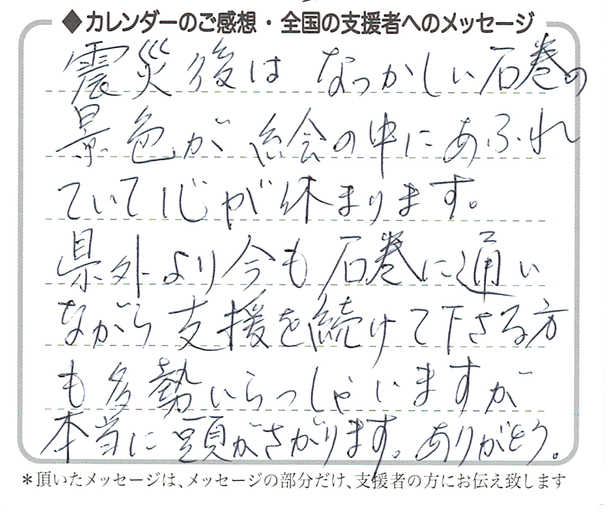 ◆カレンダーのご感想・全国の支援者へのメッセージ
震災後は なつかしい石巻の
景色が 絵の中にあふれ
ていて心が休まります。
県外より今も石巻に通い
ながら支援を続けて下さる方
も多勢いらっしゃいますが
本当に頭がさがります。ありがとう。
＊頂いたメッセージは、メッセージの部分だけ、支援者の方にお伝え致します